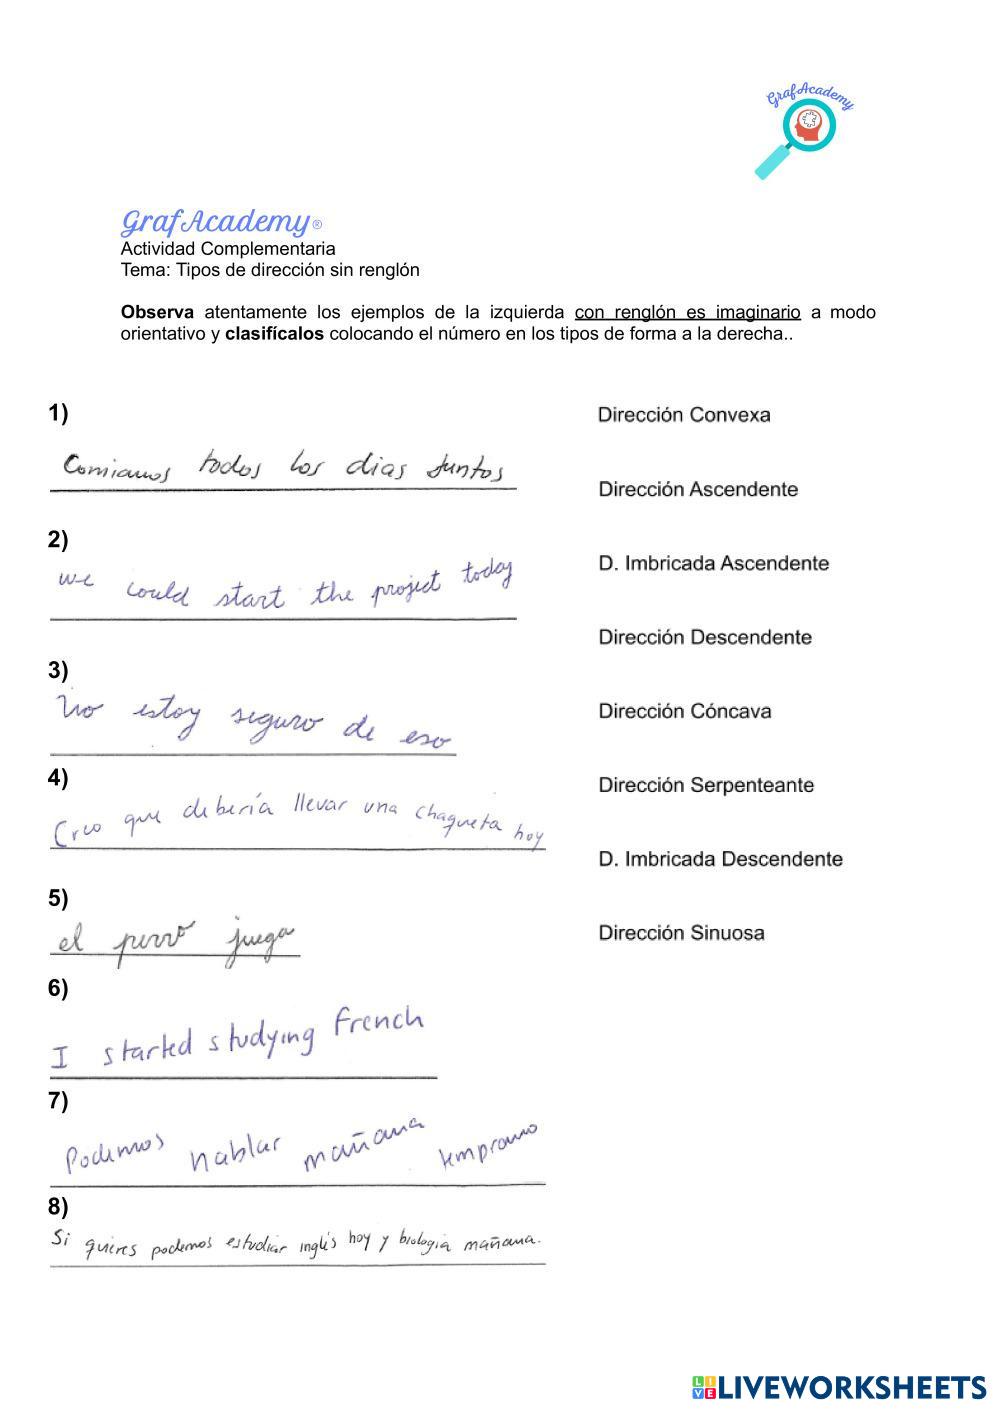 GrafAcademy
GrafAcademy®
Actividad Complementaria
Tema: Tipos de dirección sin renglón
Observa atentamente los ejemplos de la izquierda con renglón es imaginario a modo
orientativo y clasifícalos colocando el número en los tipos de forma a la derecha..
1)
Comiamos todos los dias juntos
Dirección Convexa
Dirección Ascendente
2)
we could start the project today
D. Imbricada Ascendente
Dirección Descendente
3)
No estoy seguro de eso
Dirección Cóncava
4)
Creo que debería llevar una chaqueta hoy
Dirección Serpenteante
D. Imbricada Descendente
5)
el perro juega
Dirección Sinuosa
6)
I started studying French
7)
Podemos hablar mañana temprano
8)
Si quieres podemos estudiar inglés hoy y biologia mañana.
LIVEWORKSHEETS